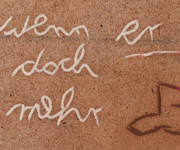 wenn er
doch
mehr